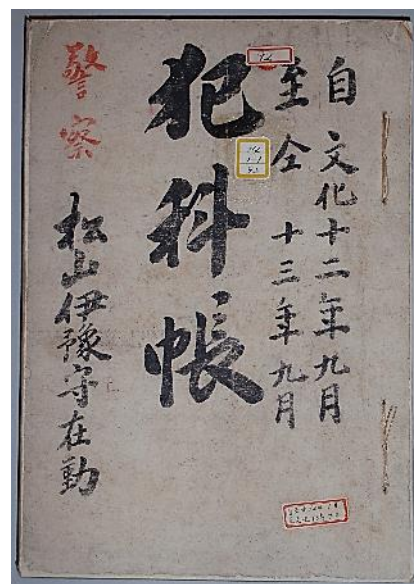 自 文化十二年九月
至 仝 十三年九月
犯科帳
警察
松山伊豫守在勤